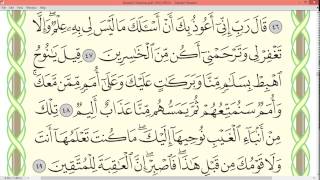 ٤٦ قَالَ رَبِّ إِنِّىٓ أَعُوذُ بِكَ أَنْ أَسْـَٔلَكَ مَا لَيْسَ لِى بِهِۦ عِلْمٌ وَإِلَّا
تَغْفِرْ لِى وَتَرْحَمْنِىٓ أَكُن مِّنَ ٱلْخَٰسِرِينَ ٤٧ قِيلَ يَٰنُوحُ
ٱهْبِطْ بِسَلَٰمٍ مِّنَّا وَبَرَكَٰتٍ عَلَيْكَ وَعَلَىٰٓ أُمَمٍ مِّمَّن مَّعَكَ
وَأُمَمٌ سَنُمَتِّعُهُمْ ثُمَّ يَمَسُّهُم مِّنَّا عَذَابٌ أَلِيمٌ ٤٨ تِلْكَ
مِنْ أَنۢبَآءِ ٱلْغَيْبِ نُوحِيهَآ إِلَيْكَ مَا كُنتَ تَعْلَمُهَآ أَنتَ
وَلَا قَوْمُكَ مِن قَبْلِ هَٰذَا فَٱصْبِرْ إِنَّ ٱلْعَٰقِبَةَ لِلْمُتَّقِينَ ٤٩